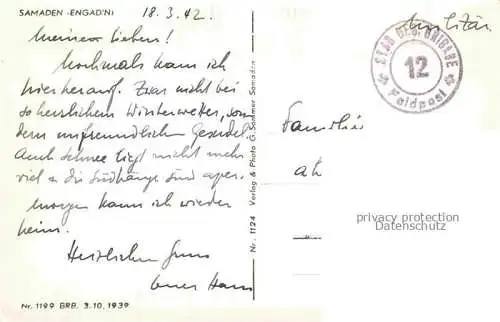 SAMADEN (ENGADIN)
18.3.42.
Meine Lieben!
Nochmals kam ich
hier herauf. Zwar nicht bei
so herrlichem Winterwetter, son
dern unfreundlichem
Auch Schnee liegt nicht mehr
viel & die Südhänge sind aper.
Morgen kann ich wieder
heim.
Herzlichen Gruss
Euer Hans
Nr. 1199 BRB. 3.10.1939
Nr. 1124 Verlag & Photo G. Sommer Samaden
Militär
STAB GEB. BRIGADE
12
Feldpost
Familie
privacy protection
Datenschutz